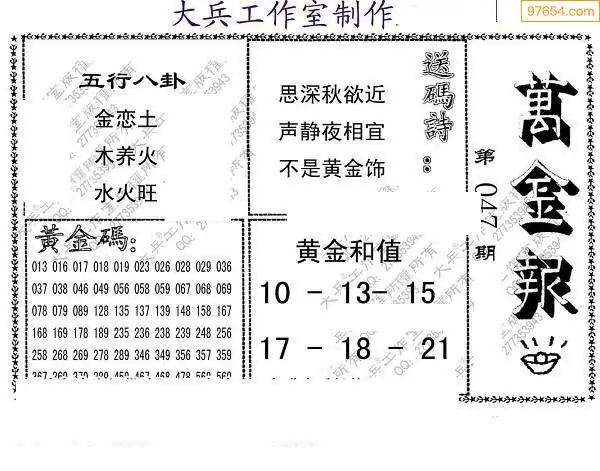 大兵工作室制作
97654.com
五行八卦
金恋土
木养火
水火旺
送碼詩：
思深秋欲近
声静夜相宜
不是黄金饰
萬金報
第047期
黃金碼：
013 016 017 018 019 023 026 028 029 036
037 038 046 049 056 057 059 067 068 069
078 079 089 128 135 137 139 148 158 167
168 169 178 189 235 236 238 239 248 256
258 268 269 278 288 345 346 356 357 359
黄金和值
10 - 13- 15
17 - 18 - 21